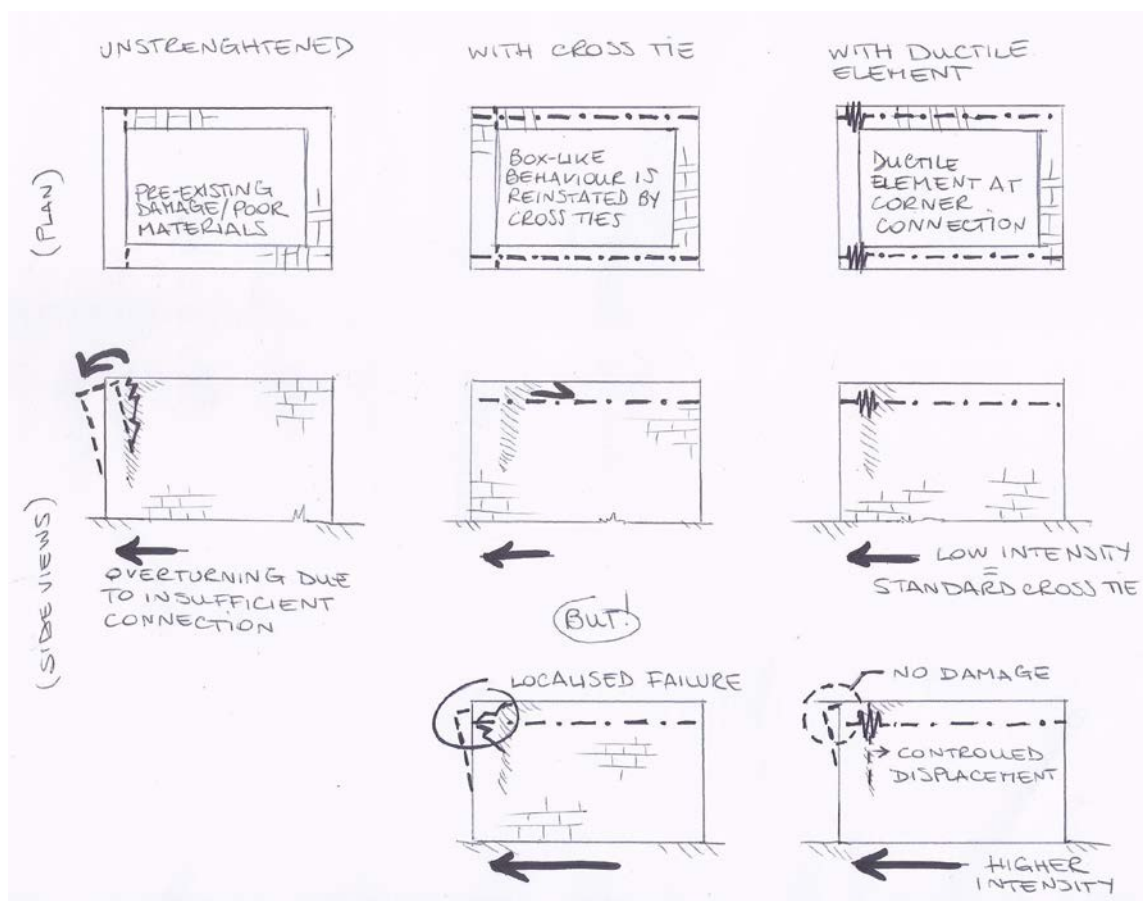 UNSTRENGHTENED
WITH CROSS TIE
WITH DUCTILE
ELEMENT
(PLAN)
PRE-EXISTING
DAMAGE/POOR
MATERIALS
BOX-LIKE
BEHAVIOUR IS
REINSTATED BY
CROSS TIES
DUCTILE
ELEMENT AT
CORNER
CONNECTION
(SIDE VIEWS)
OVERTURNING DUE
TO INSUFFICIENT
CONNECTION
LOW INTENSITY
=
STANDARD CROSS TIE
BUT!
LOCALISED FAILURE
NO DAMAGE
CONTROLLED
DISPLACEMENT
HIGHER
INTENSITY